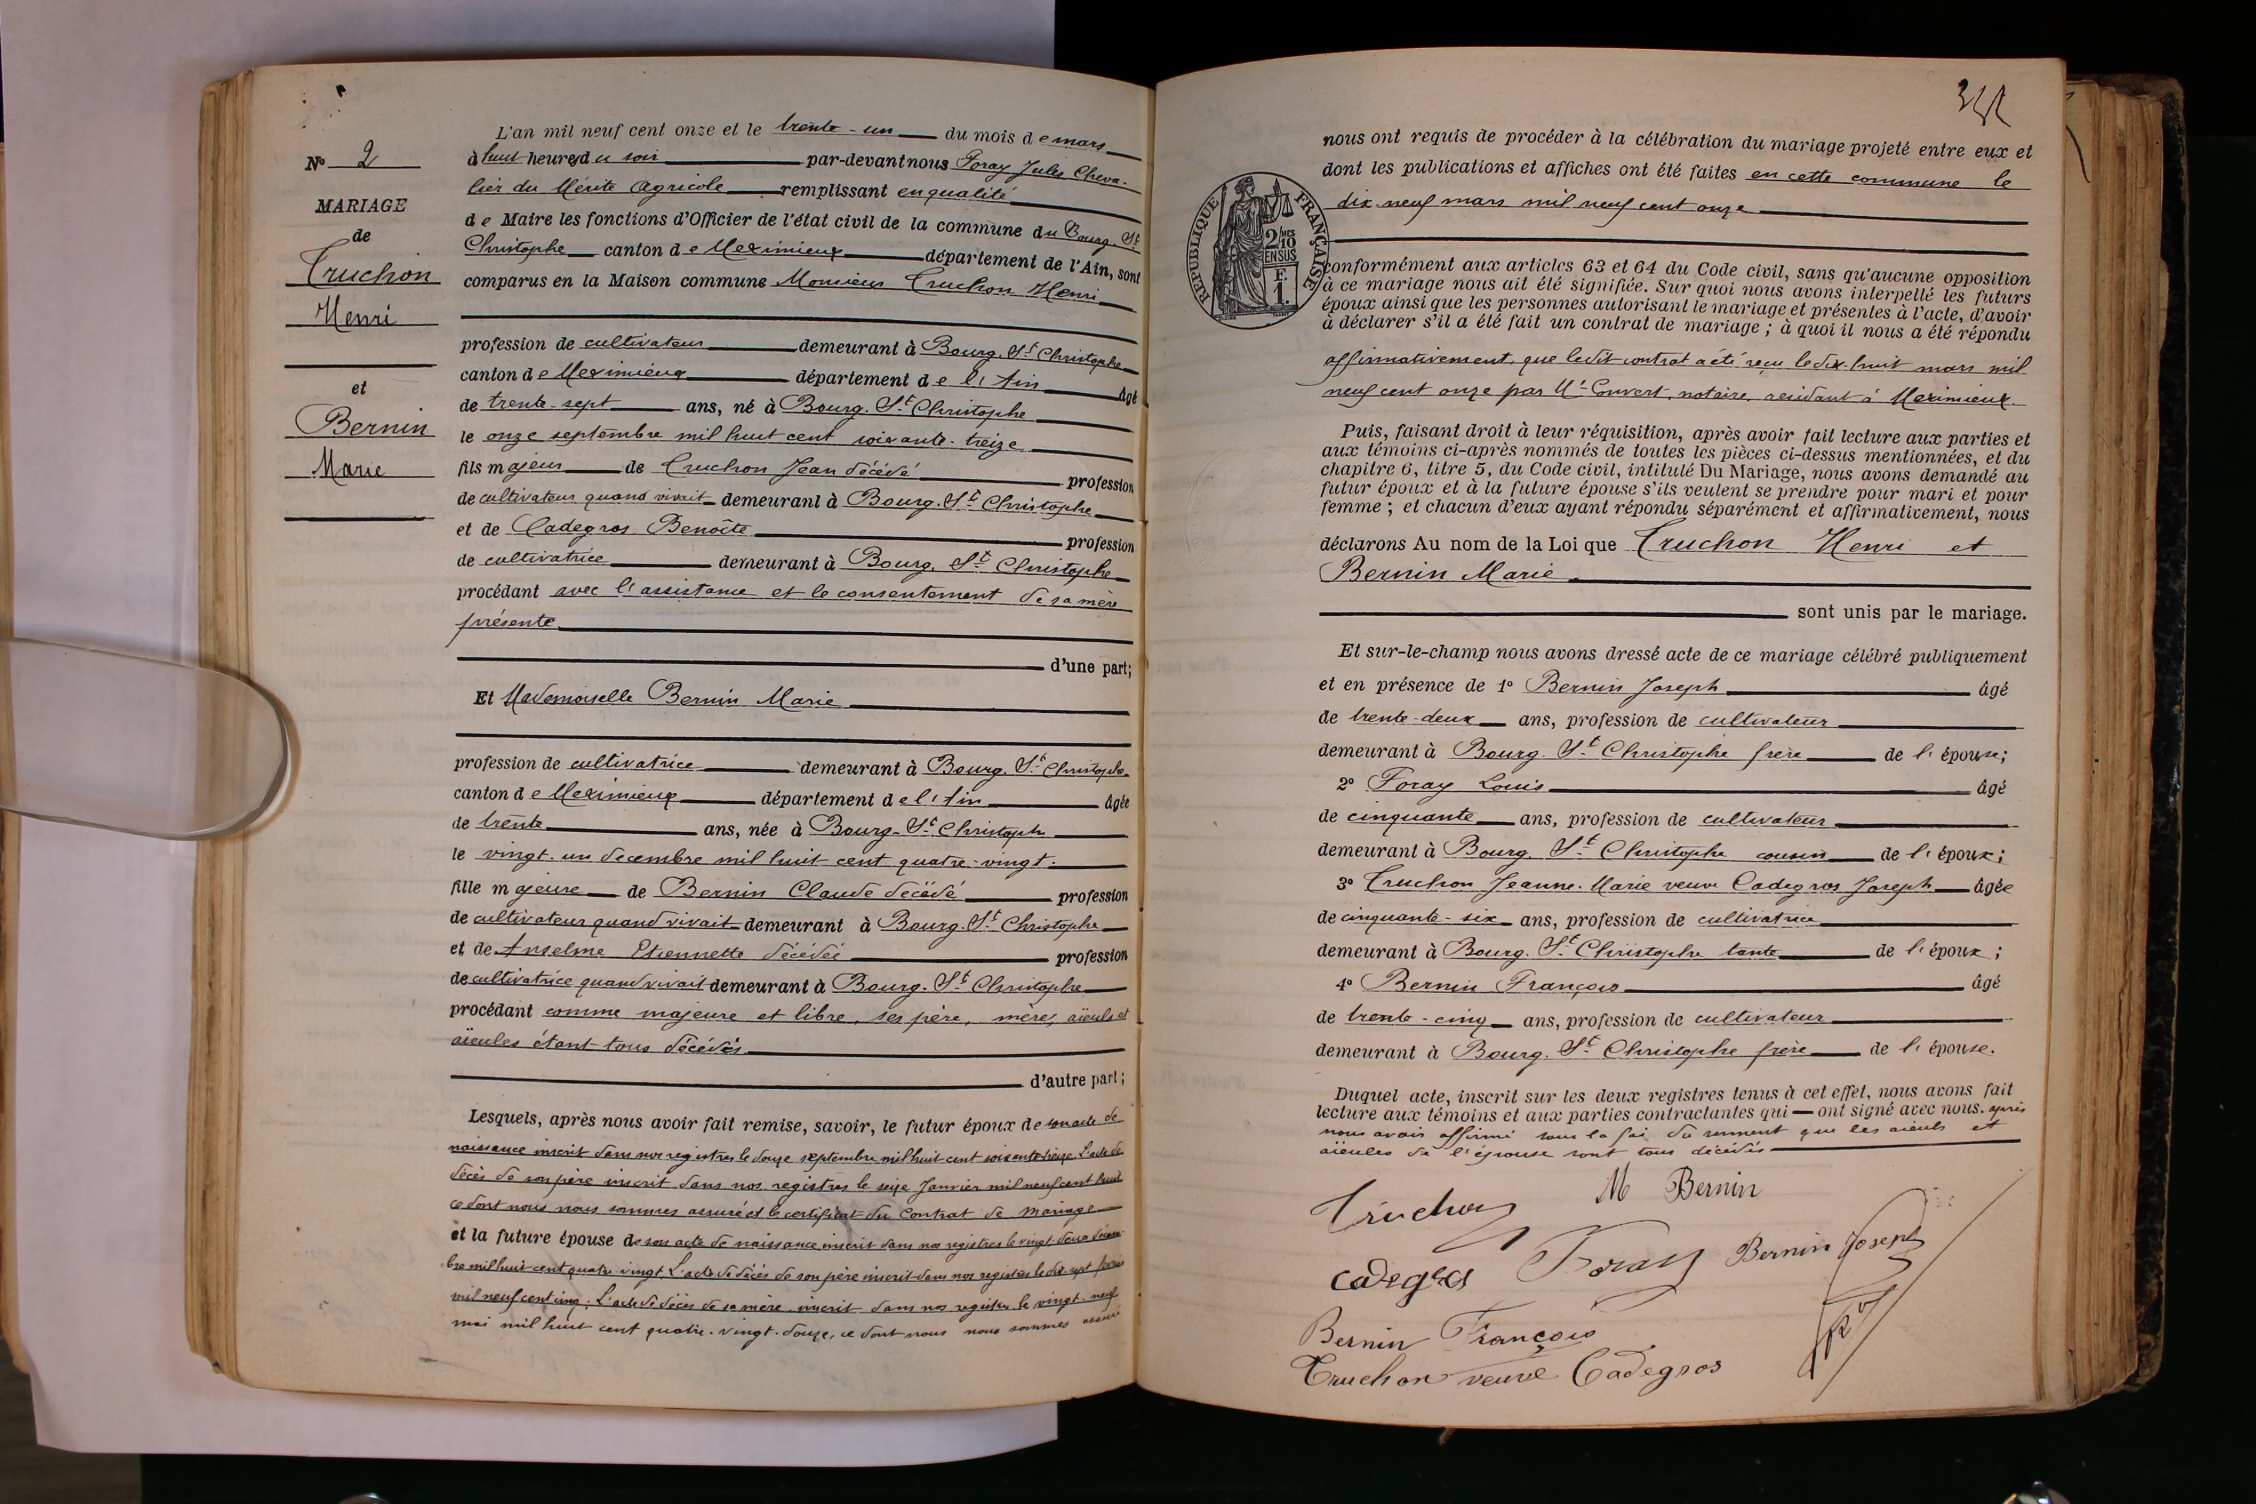 N° 2
MARIAGE
de
Truchon
Henri
et
Bernin
Marie
L'an mil neuf cent onze et le trente-un du mois de mars
à huit heures du soir par-devant nous Foray Jules Cheva-
lier du Mérite Agricole remplissant en qualité
de Maire les fonctions d'Officier de l'état civil de la commune du Bourg-St
Christophe canton de Meximieux département de l'Ain, sont
comparus en la Maison commune Monsieur Truchon Henri
profession de cultivateur demeurant à Bourg-St Christophe
canton de Meximieux département de l'Ain âgé
de trente-sept ans, né à Bourg-St Christophe
le onze septembre mil huit cent soixante-treize
fils majeur de Truchon Jean décédé profession
de cultivateur quand vivait demeurant à Bourg-St Christophe
et de Cadegros Benoîte profession
de cultivatrice demeurant à Bourg-St Christophe
procédant avec l'assistance et le consentement de sa mère
présente
d'une part;
Et Mademoiselle Bernin Marie
profession de cultivatrice demeurant à Bourg-St Christophe
canton de Meximieux département de l'Ain âgée
de trente ans, née à Bourg-St Christophe
le vingt-un decembre mil huit cent quatre-vingt.
fille majeure de Bernin Claude décédé profession
de cultivateur quand vivait demeurant à Bourg-St Christophe
et de Anselme Etiennette décédée profession
de cultivatrice quand vivait demeurant à Bourg-St Christophe
procédant comme majeure et libre, ses père, mère, aïeuls et
aïeules étant tous décédés
d'autre part;
Lesquels, après nous avoir fait remise, savoir, le futur époux de son acte de
naissance inscrit dans nos registres le douze septembre mil huit cent soixante treize. L'acte de
décès de son père inscrit dans nos registres le seize Janvier mil neuf cent huit
ce dont nous nous sommes assuré et le certificat du Contrat de mariage
et la future épouse de son acte de naissance inscrit dans nos registres le vingt-deux décem-
bre mil huit cent quatre vingt L'acte de décès de son père inscrit dans nos registres le dix sept
mil neuf cent cinq. L'acte de décès de sa mère inscrit dans nos registres le vingt-neuf
mai mil huit cent quatre-vingt-douze, ce dont nous nous sommes assuré
nous ont requis de procéder à la célébration du mariage projeté entre eux et
dont les publications et affiches ont été faites en cette commune le
dix-neuf mars mil neuf cent onze
RÉPUBLIQUE FRANÇAISE
2/10
EN SUS
F.
1.
conformément aux articles 63 et 64 du Code civil, sans qu'aucune opposition
à ce mariage nous ait été signifiée. Sur quoi nous avons interpellé les futurs
époux ainsi que les personnes autorisant le mariage et présentes à l'acte, d'avoir
à déclarer s'il a été fait un contrat de mariage; à quoi il nous a été répondu
affirmativement, que ledit contrat a été reçu le dix-huit mars mil
neuf cent onze par Me Convert, notaire, résidant à Meximieux.
Puis, faisant droit à leur réquisition, après avoir fait lecture aux parties et
aux témoins ci-après nommés de toutes les pièces ci-dessus mentionnées, et du
chapitre 6, titre 5, du Code civil, intitulé Du Mariage, nous avons demandé au
futur époux et à la future épouse s'ils veulent se prendre pour mari et pour
femme; et chacun d'eux ayant répondu séparément et affirmativement, nous
déclarons Au nom de la Loi que Truchon Henri et
Bernin Marie
sont unis par le mariage.
Et sur-le-champ nous avons dressé acte de ce mariage célébré publiquement
et en présence de 1° Bernin Joseph âgé
de trente-deux ans, profession de cultivateur
demeurant à Bourg-St Christophe frère de l'épouse;
2° Foray Louis âgé
de cinquante ans, profession de cultivateur
demeurant à Bourg-St Christophe cousin de l'époux;
3° Truchon Jeanne-Marie veuve Cadegros Joseph âgée
de cinquante-six ans, profession de cultivatrice
demeurant à Bourg-St Christophe tante de l'époux;
4° Bernin François âgé
de trente-cinq ans, profession de cultivateur
demeurant à Bourg-St Christophe frère de l'épouse.
Duquel acte, inscrit sur les deux registres tenus à cet effet, nous avons fait
lecture aux témoins et aux parties contractantes qui ont signé avec nous. après
nous avoir affirmé sous la foi du serment que les aïeuls et
aïeules de l'épouse sont tous décédés
Truchon
M Bernin
Cadegros
Foray
Bernin Joseph
Bernin François
Truchon veuve Cadegros